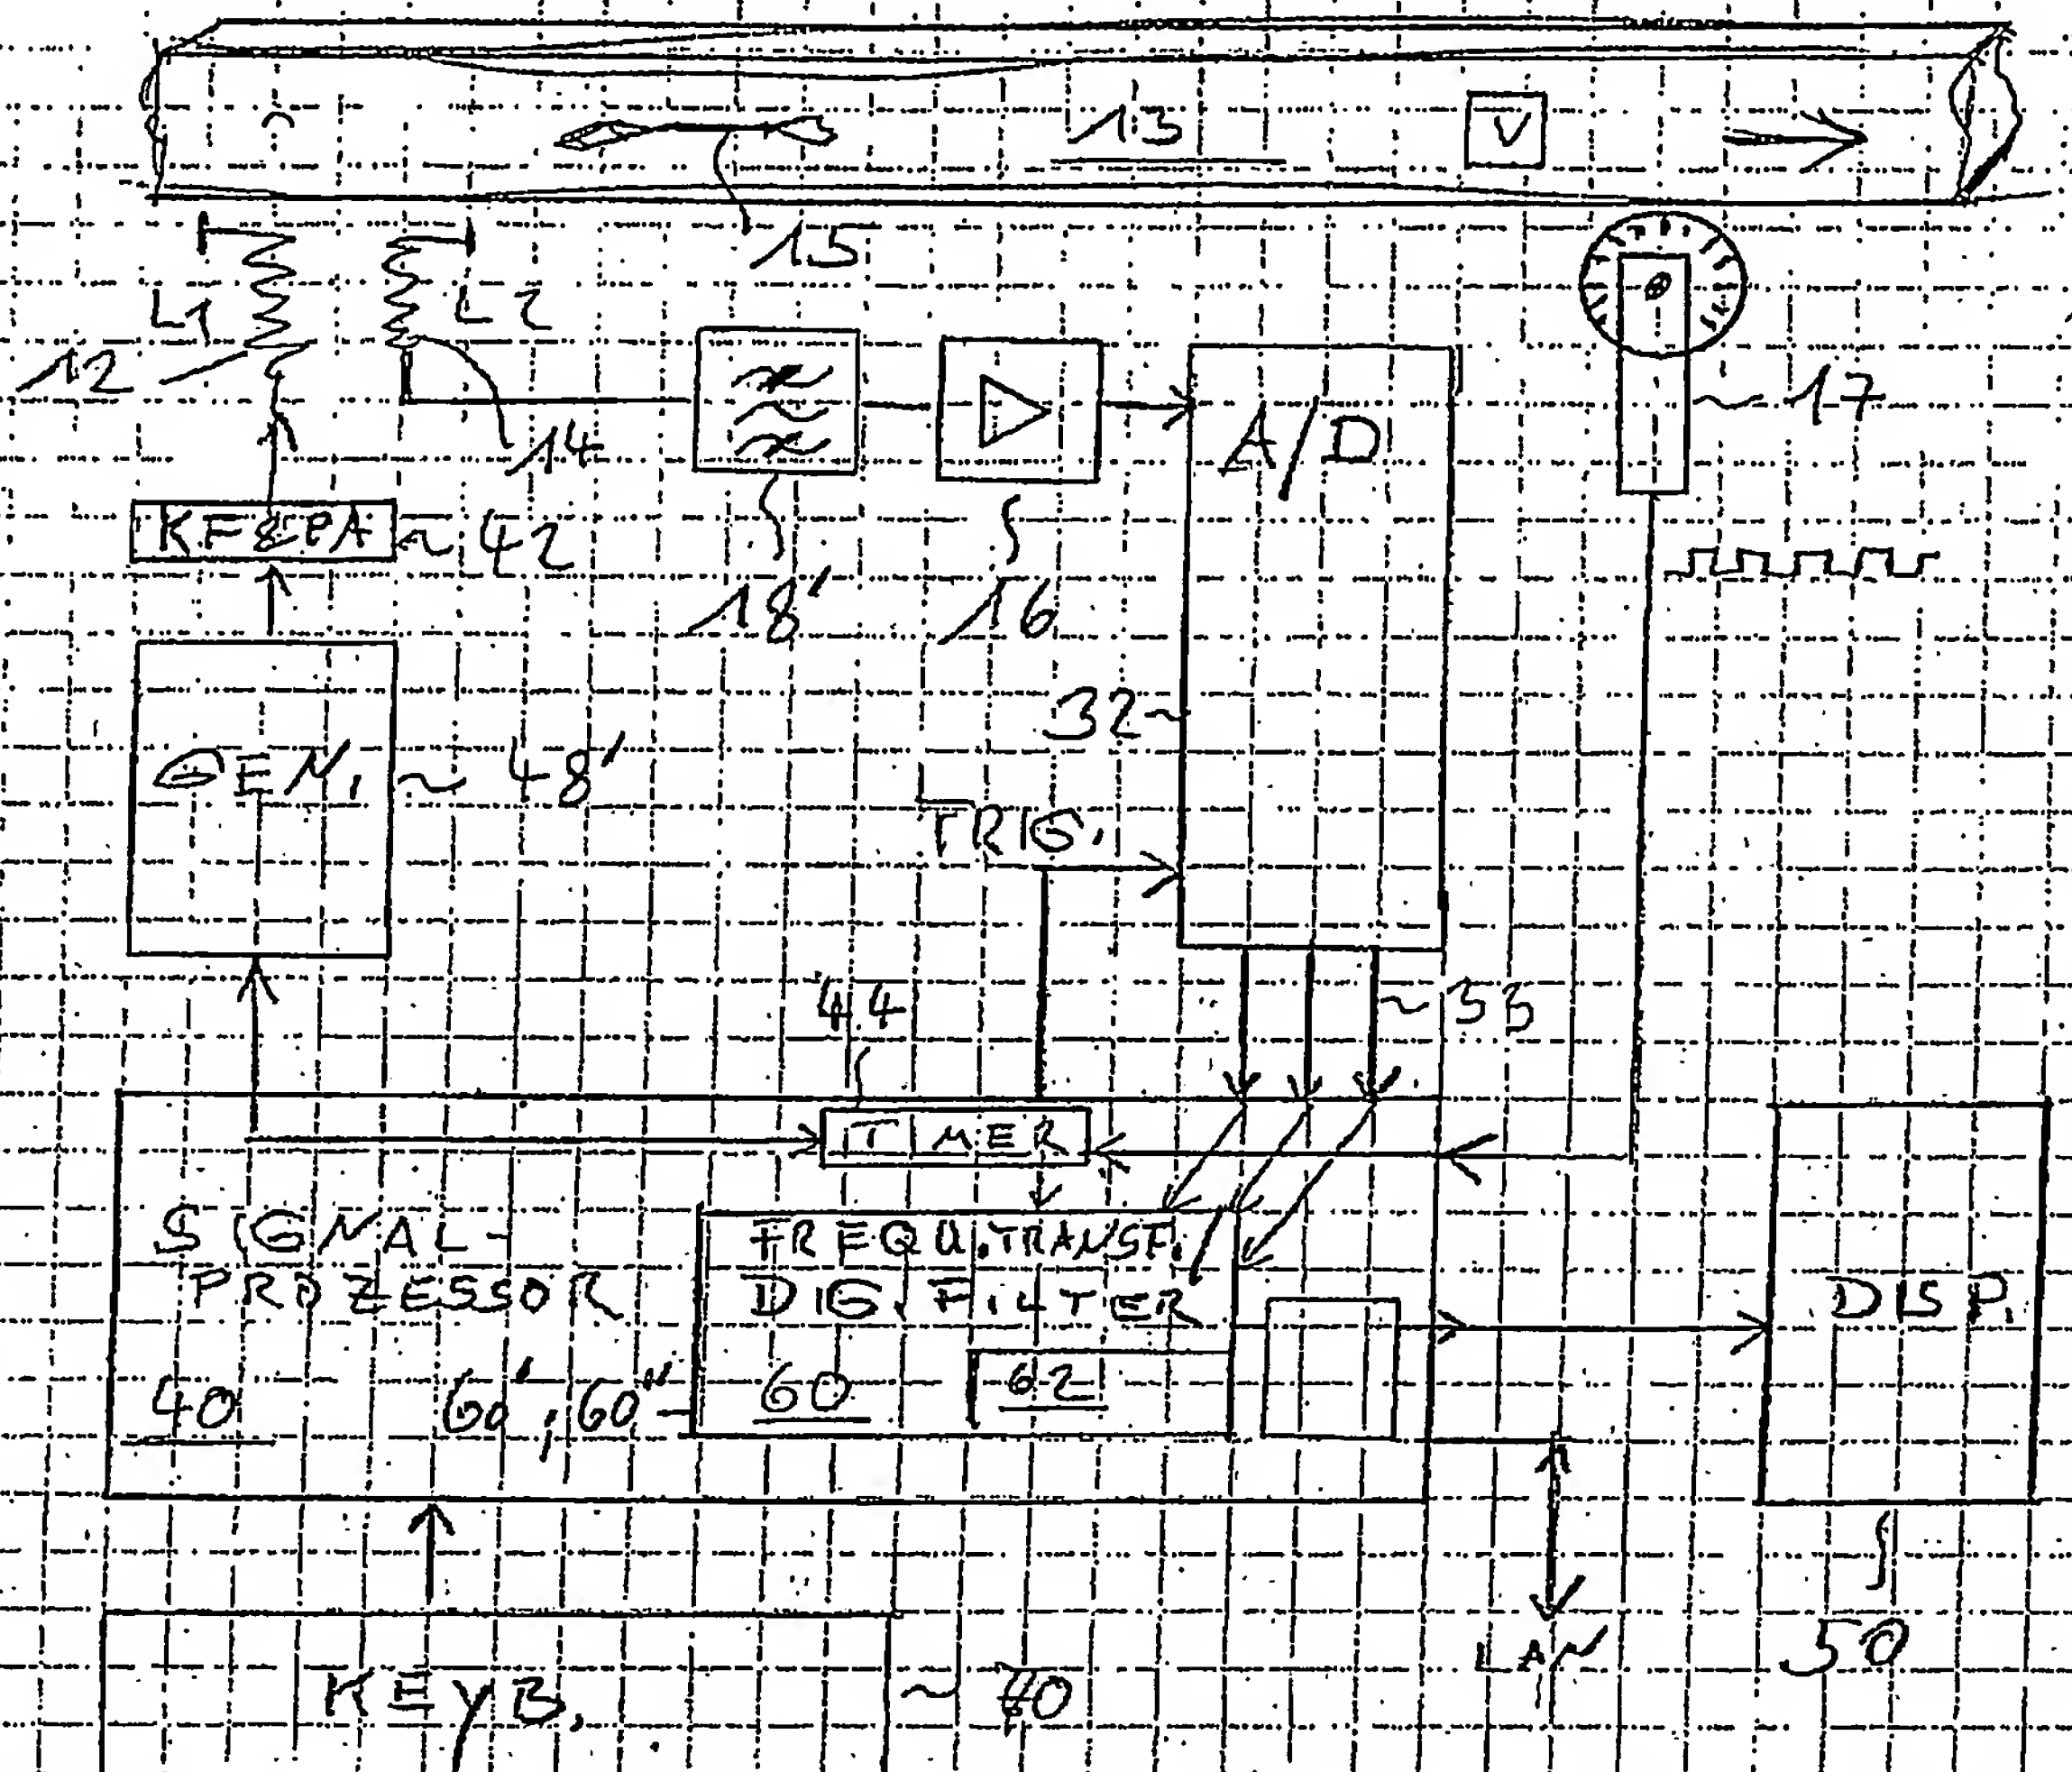 13
V
15
L1
L2
12
14
17
A/D
42
18'
16
32~
GEN.
~ 48'
TRIG.
44
~ 33
TIMER
SIGNAL-
PROZESSOR
FREQU.TRANSF./
DIG. FILTER
DISP.
40
60', 60"
60
62
LAN
50
KEYB.